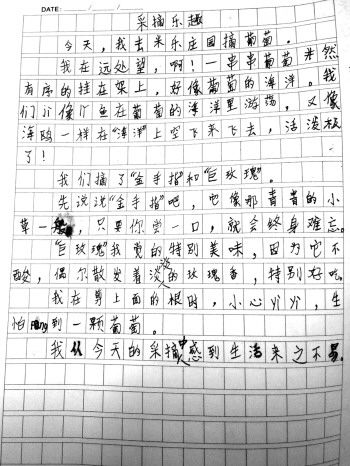 DATE: / /
采摘乐趣
今天，我去米乐庄园摘葡萄。
我在远处望，啊！一串串葡萄井然
有序的挂在架上，好像葡萄的海洋。我
们像鱼在葡萄的海洋里游荡，又像
海鸥一样在“海洋”上空飞来飞去，活泼极
了！
我们摘了“金手指”和“巨玫瑰”。
先说说“金手指”吧，它像那青青的小
草一般，只要你尝一口，就会终身难忘。
“巨玫瑰”我觉的特别美味，因为它不
酸，偶尔散发着淡淡的玫瑰香，特别好吃。
我在剪上面的根时，小心，生
怕pèng到一颗葡萄。
我从今天的采摘中感到生活来之不易。